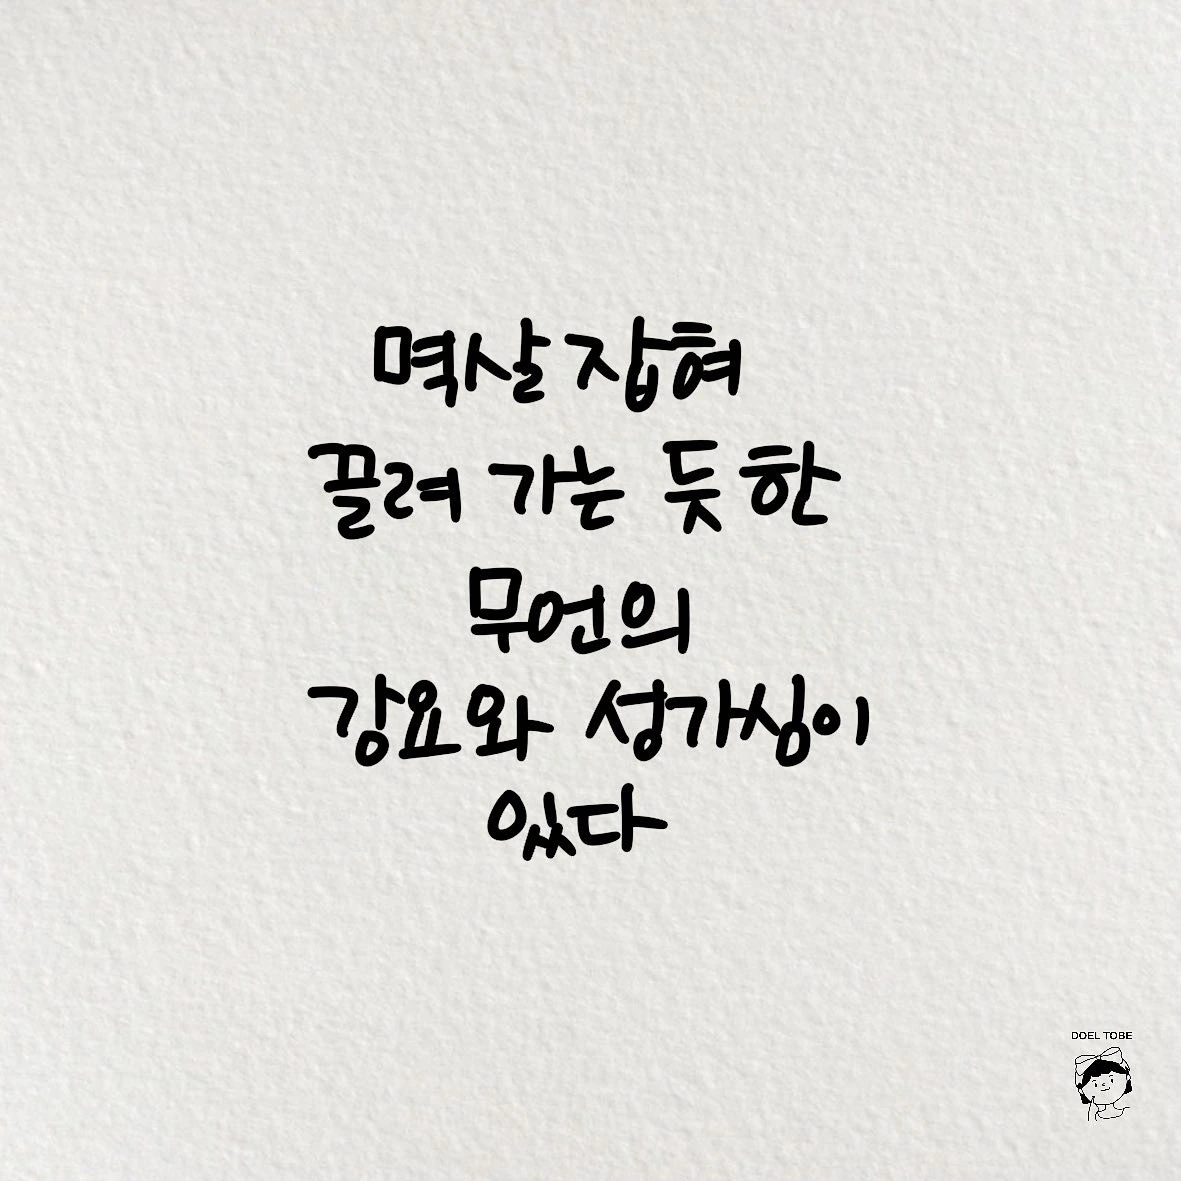 멱살 잡혀
끌려 가는 듯 한
무언의
강요와 성가심이
있다
DOEL TOBE